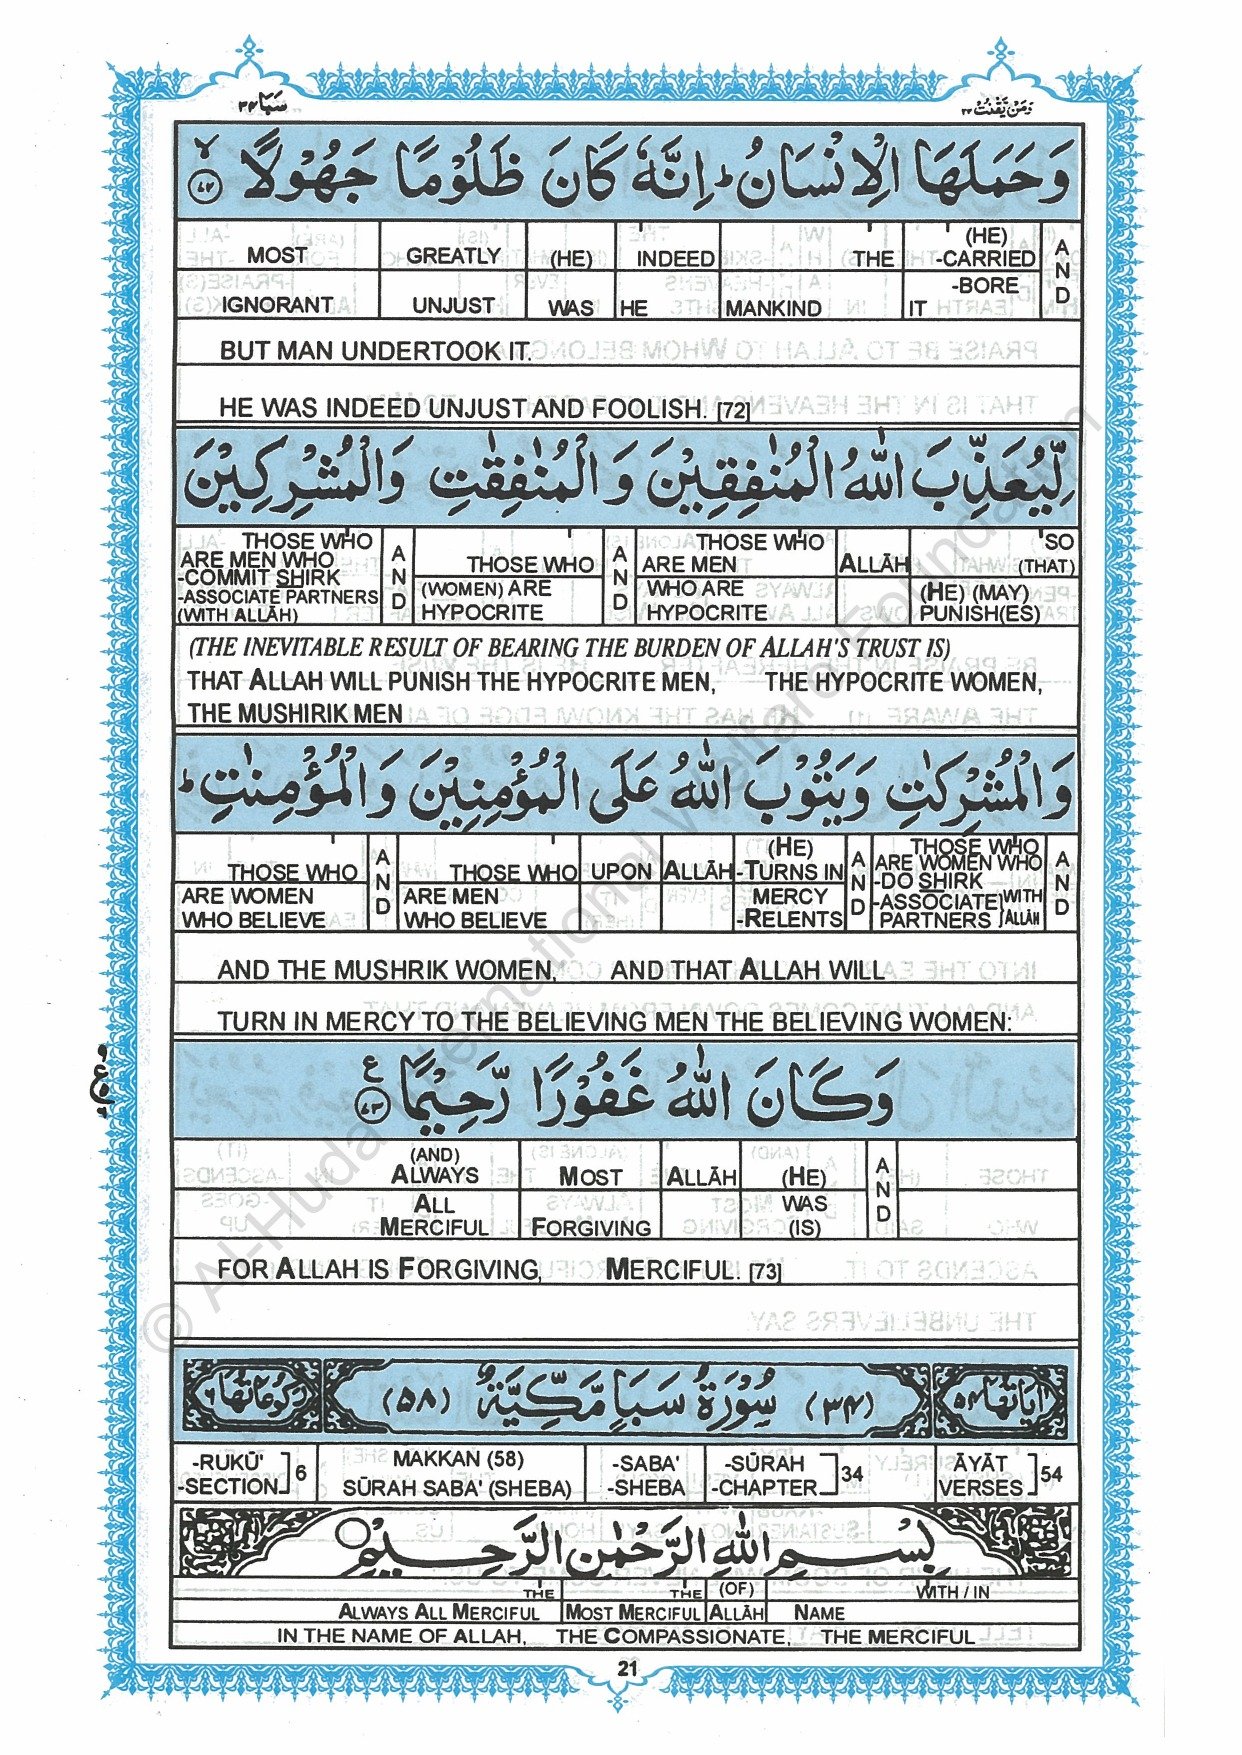 سَبَا ٣٤
وَمَنْ يَّقْنُتْ ٢٢
وَحَمَلَهَا الْاِنْسَانُ ؕ اِنَّهٗ كَانَ ظَلُوْمًا جَهُوْلًا ۙ ﴿٧٢﴾
MOST GREATLY (HE) INDEED THE (HE) -CARRIED AND
IGNORANT UNJUST WAS HE MANKIND IT -BORE
BUT MAN UNDERTOOK IT.
HE WAS INDEED UNJUST AND FOOLISH. [72]
لِّيُعَذِّبَ اللّٰهُ الْمُنٰفِقِيْنَ وَالْمُنٰفِقٰتِ وَالْمُشْرِكِيْنَ
THOSE WHO ARE MEN WHO -COMMIT SHIRK -ASSOCIATE PARTNERS (WITH ALLĀH) AND THOSE WHO (WOMEN) ARE HYPOCRITE AND THOSE WHO ARE MEN WHO ARE HYPOCRITE ALLĀH SO (THAT) (HE) (MAY) PUNISH(ES)
(THE INEVITABLE RESULT OF BEARING THE BURDEN OF ALLAH'S TRUST IS)
THAT ALLAH WILL PUNISH THE HYPOCRITE MEN, THE HYPOCRITE WOMEN,
THE MUSHIRIK MEN
وَالْمُشْرِكٰتِ وَيَتُوْبَ اللّٰهُ عَلَى الْمُؤْمِنِيْنَ وَالْمُؤْمِنٰتِ ؕ
THOSE WHO ARE WOMEN WHO BELIEVE AND THOSE WHO ARE MEN WHO BELIEVE UPON ALLĀH (HE) -TURNS IN MERCY -RELENTS AND THOSE WHO ARE WOMEN WHO -DO SHIRK -ASSOCIATE PARTNERS WITH ALLĀH AND
AND THE MUSHRIK WOMEN, AND THAT ALLAH WILL
TURN IN MERCY TO THE BELIEVING MEN THE BELIEVING WOMEN:
وَكَانَ اللّٰهُ غَفُوْرًا رَّحِيْمًا ﴿٧٣﴾ ع
(AND) ALWAYS MOST ALLĀH (HE) AND
ALL MERCIFUL FORGIVING WAS (IS)
FOR ALLAH IS FORGIVING, MERCIFUL. [73]
اٰيَاتُهَا ٥٤ (٣٤) سُوْرَةُ سَبَاٍ مَّكِّيَّةٌ (٥٨) رُكُوْعَاتُهَا ٦
-RUKŪ' -SECTION 6 MAKKAN (58) SŪRAH SABA' (SHEBA) -SABA' -SHEBA -SŪRAH -CHAPTER 34 ĀYĀT VERSES 54
بِسْمِ اللّٰهِ الرَّحْمٰنِ الرَّحِيْمِ
THE THE (OF) WITH / IN
ALWAYS ALL MERCIFUL MOST MERCIFUL ALLĀH NAME
IN THE NAME OF ALLAH, THE COMPASSIONATE, THE MERCIFUL
21
© Al-Huda International Welfare Foundation